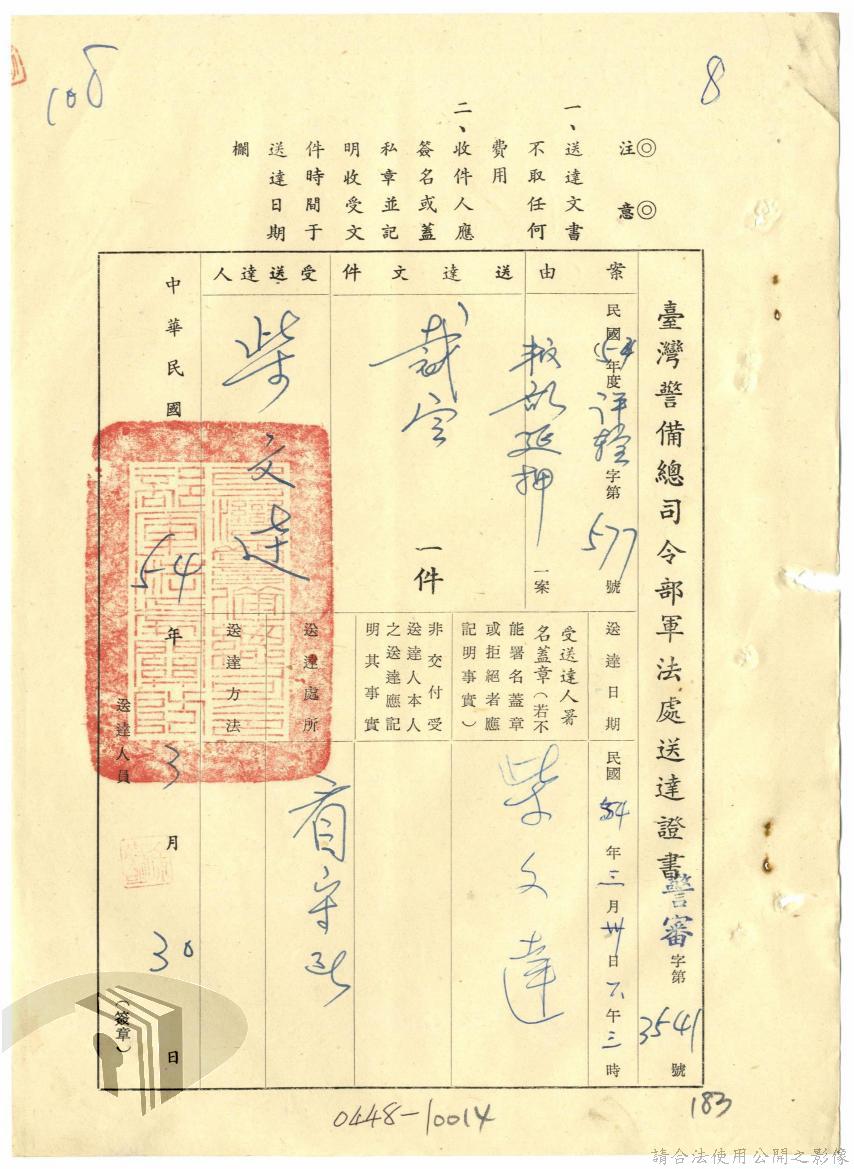 108
8
◎注意◎
一、送達文書
不取任何
費用
二、收件人應
簽名或蓋
私章並記
明收受文
件時間于
送達日期
欄
臺灣警備總司令部軍法處送達證書 警審字第3541號
案由
民國54年度評轄字第577號
叛亂延押一案
送達文件
裁定一件
受送達人
柴文達
送達日期
民國54年三月卅日下午三時
受送達人署
名蓋章(若不
能署名蓋章
或拒絕者應
記明事實)
柴文達
非交付受
送達人本人
之送達應記
明其事實
送達處所
看守所
送達方法
中華民國54年3月30日
送達人員
(簽章)
0448-10014
183
請合法使用公開之影像